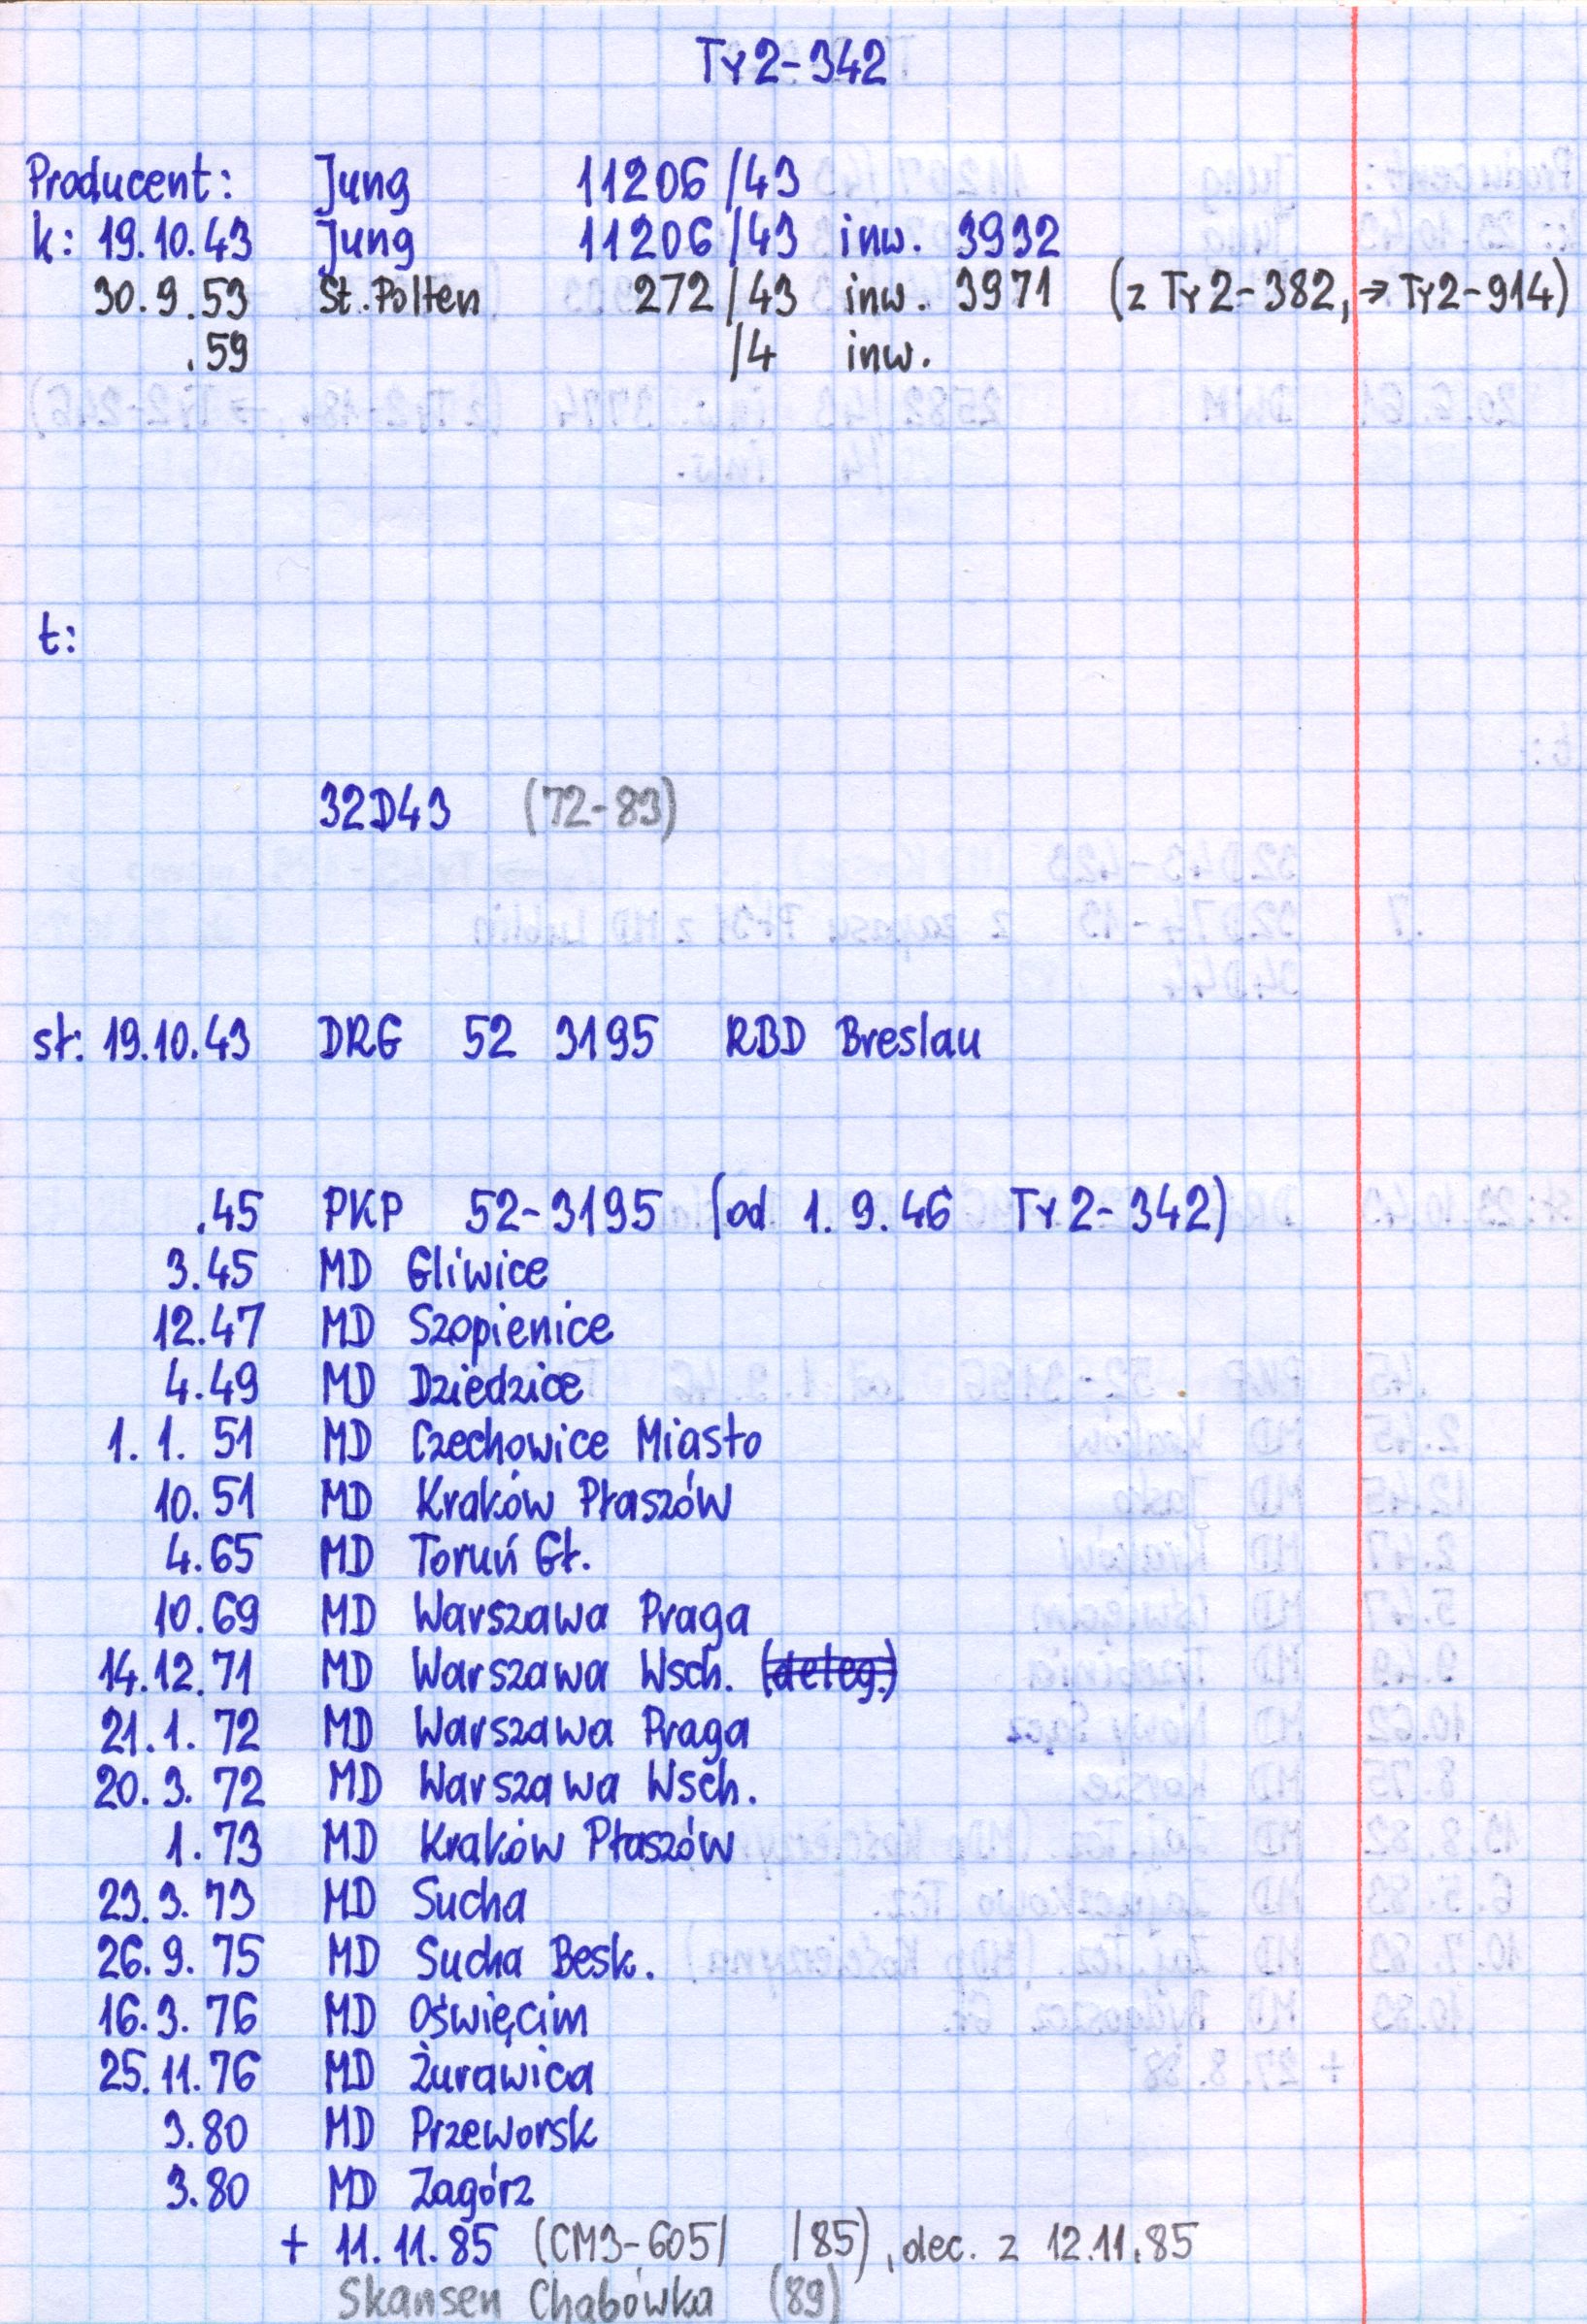 Ty2-342
Producent: Jung 11206/43
k: 19.10.43 Jung 11206/43 inw. 3932
30.9.53 St.Pölten 272/43 inw. 3971 (z Ty2-382, → Ty2-914)
.59 /4 inw.
t:
32D43 (72-83)
st: 19.10.43 DRG 52 3195 RBD Breslau
.45 PKP 52-3195 (od 1.9.46 Ty2-342)
3.45 MD Gliwice
12.47 MD Szopienice
4.49 MD Dziedzice
1.1.51 MD Czechowice Miasto
10.51 MD Kraków Płaszów
4.65 MD Toruń Gł.
10.69 MD Warszawa Praga
14.12.71 MD Warszawa Wsch. (deleg.)
21.1.72 MD Warszawa Praga
20.3.72 MD Warszawa Wsch.
1.73 MD Kraków Płaszów
23.3.73 MD Sucha
26.9.75 MD Sucha Besk.
16.3.76 MD Oświęcim
25.11.76 MD Żurawica
3.80 MD Przeworsk
3.80 MD Zagórz
+ 11.11.85 (CM3-605/ /85), dec. z 12.11.85
Skansen Chabówka (89)